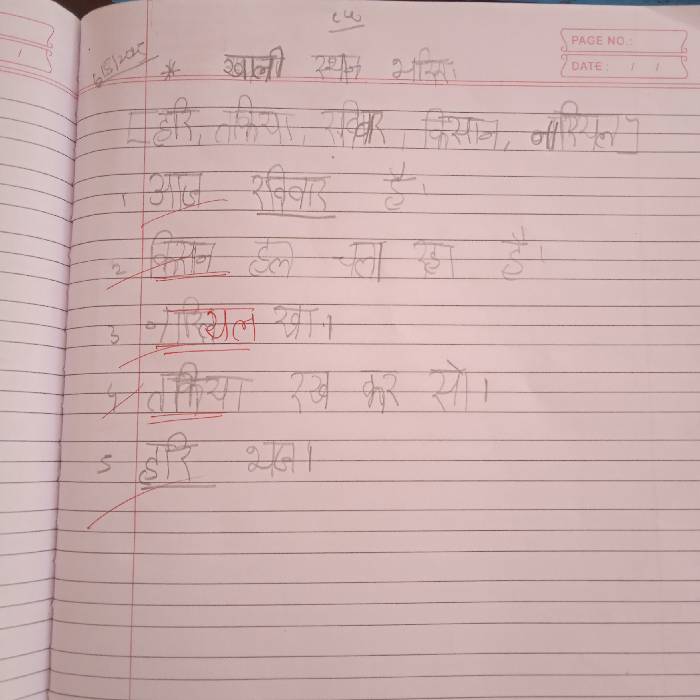 cw
PAGE NO.:
DATE: / /
6/5/2025
* खाली स्थान भरिए।
[हरि, तकिया, रविवार, किसान, नारियल]
1 आज रविवार है।
2 किसान हल चला रहा है।
3 नारियल खा।
4 तकिया रख कर सो।
5 हरि भज।